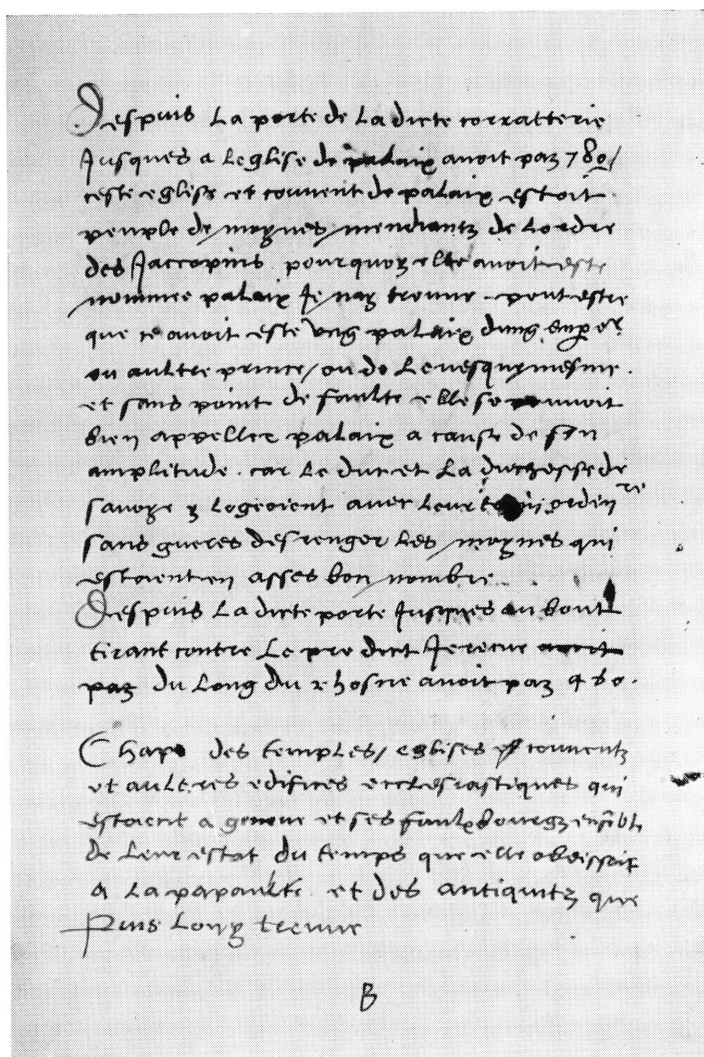 Despuis La porte de La dicte corratterie
Jusques a Leglise de palaix avoit paz 780/
ceste eglise et couvent de palaix estoit
peuple de moynes mendiantz de Lordre
des Jaccopins pourquoy elle avoit este
nommee palaix Je nay trouve . peut estre
que ce avoit este ung palaix dung emper
ou aultre prince/ ou de Levesque mesme .
et sans point de faulte elle se pouvoit
bien appeller palaix a cause de son
amplitude . car Le duc et La duchesse de
savoye y Logeoient avec Leur ordinre
sans gueres desrenger Les moynes qui
estoient en asses bon nombre .
Despuis La dicte porte Jusques au bout
tirant contre Le pre dict
paz du Long du rhosne avoit paz 480 .
Chap des temples/ eglises et couventz
et aultres edifices ecclesiastiques qui
estoient a geneve et ses faulxbourgz ensembl
de Leur estat du temps que elle obeissoit
a La papaulte et des antiquitz que
Puis Long treuve
B